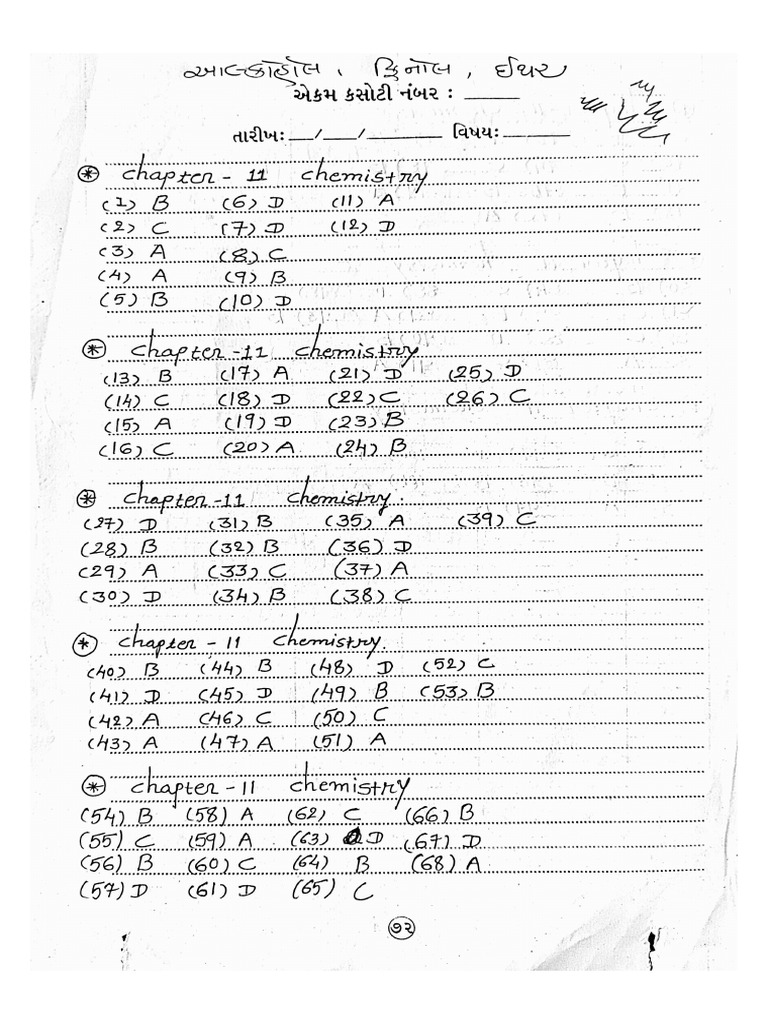 આલ્કોહોલ, ફિનોલ, ઈથર
એકમ કસોટી નંબર : _____
તારીખ:___/____/________ વિષય:_______
* chapter - 11 chemistry
(1) B (6) D (11) A
(2) C (7) D (12) D
(3) A (8) C
(4) A (9) B
(5) B (10) D
* chapter -11 chemistry
(13) B (17) A (21) D (25) D
(14) C (18) D (22) C (26) C
(15) A (19) D (23) B
(16) C (20) A (24) B
* chapter -11 chemistry.
(27) D (31) B (35) A (39) C
(28) B (32) B (36) D
(29) A (33) C (37) A
(30) D (34) B (38) C
* chapter - 11 chemistry.
(40) B (44) B (48) D (52) C
(41) D (45) D (49) B (53) B
(42) A (46) C (50) C
(43) A (47) A (51) A
* chapter - 11 chemistry
(54) B (58) A (62) C (66) B
(55) C (59) A (63) D (67) D
(56) B (60) C (64) B (68) A
(57) D (61) D (65) C
૭૨